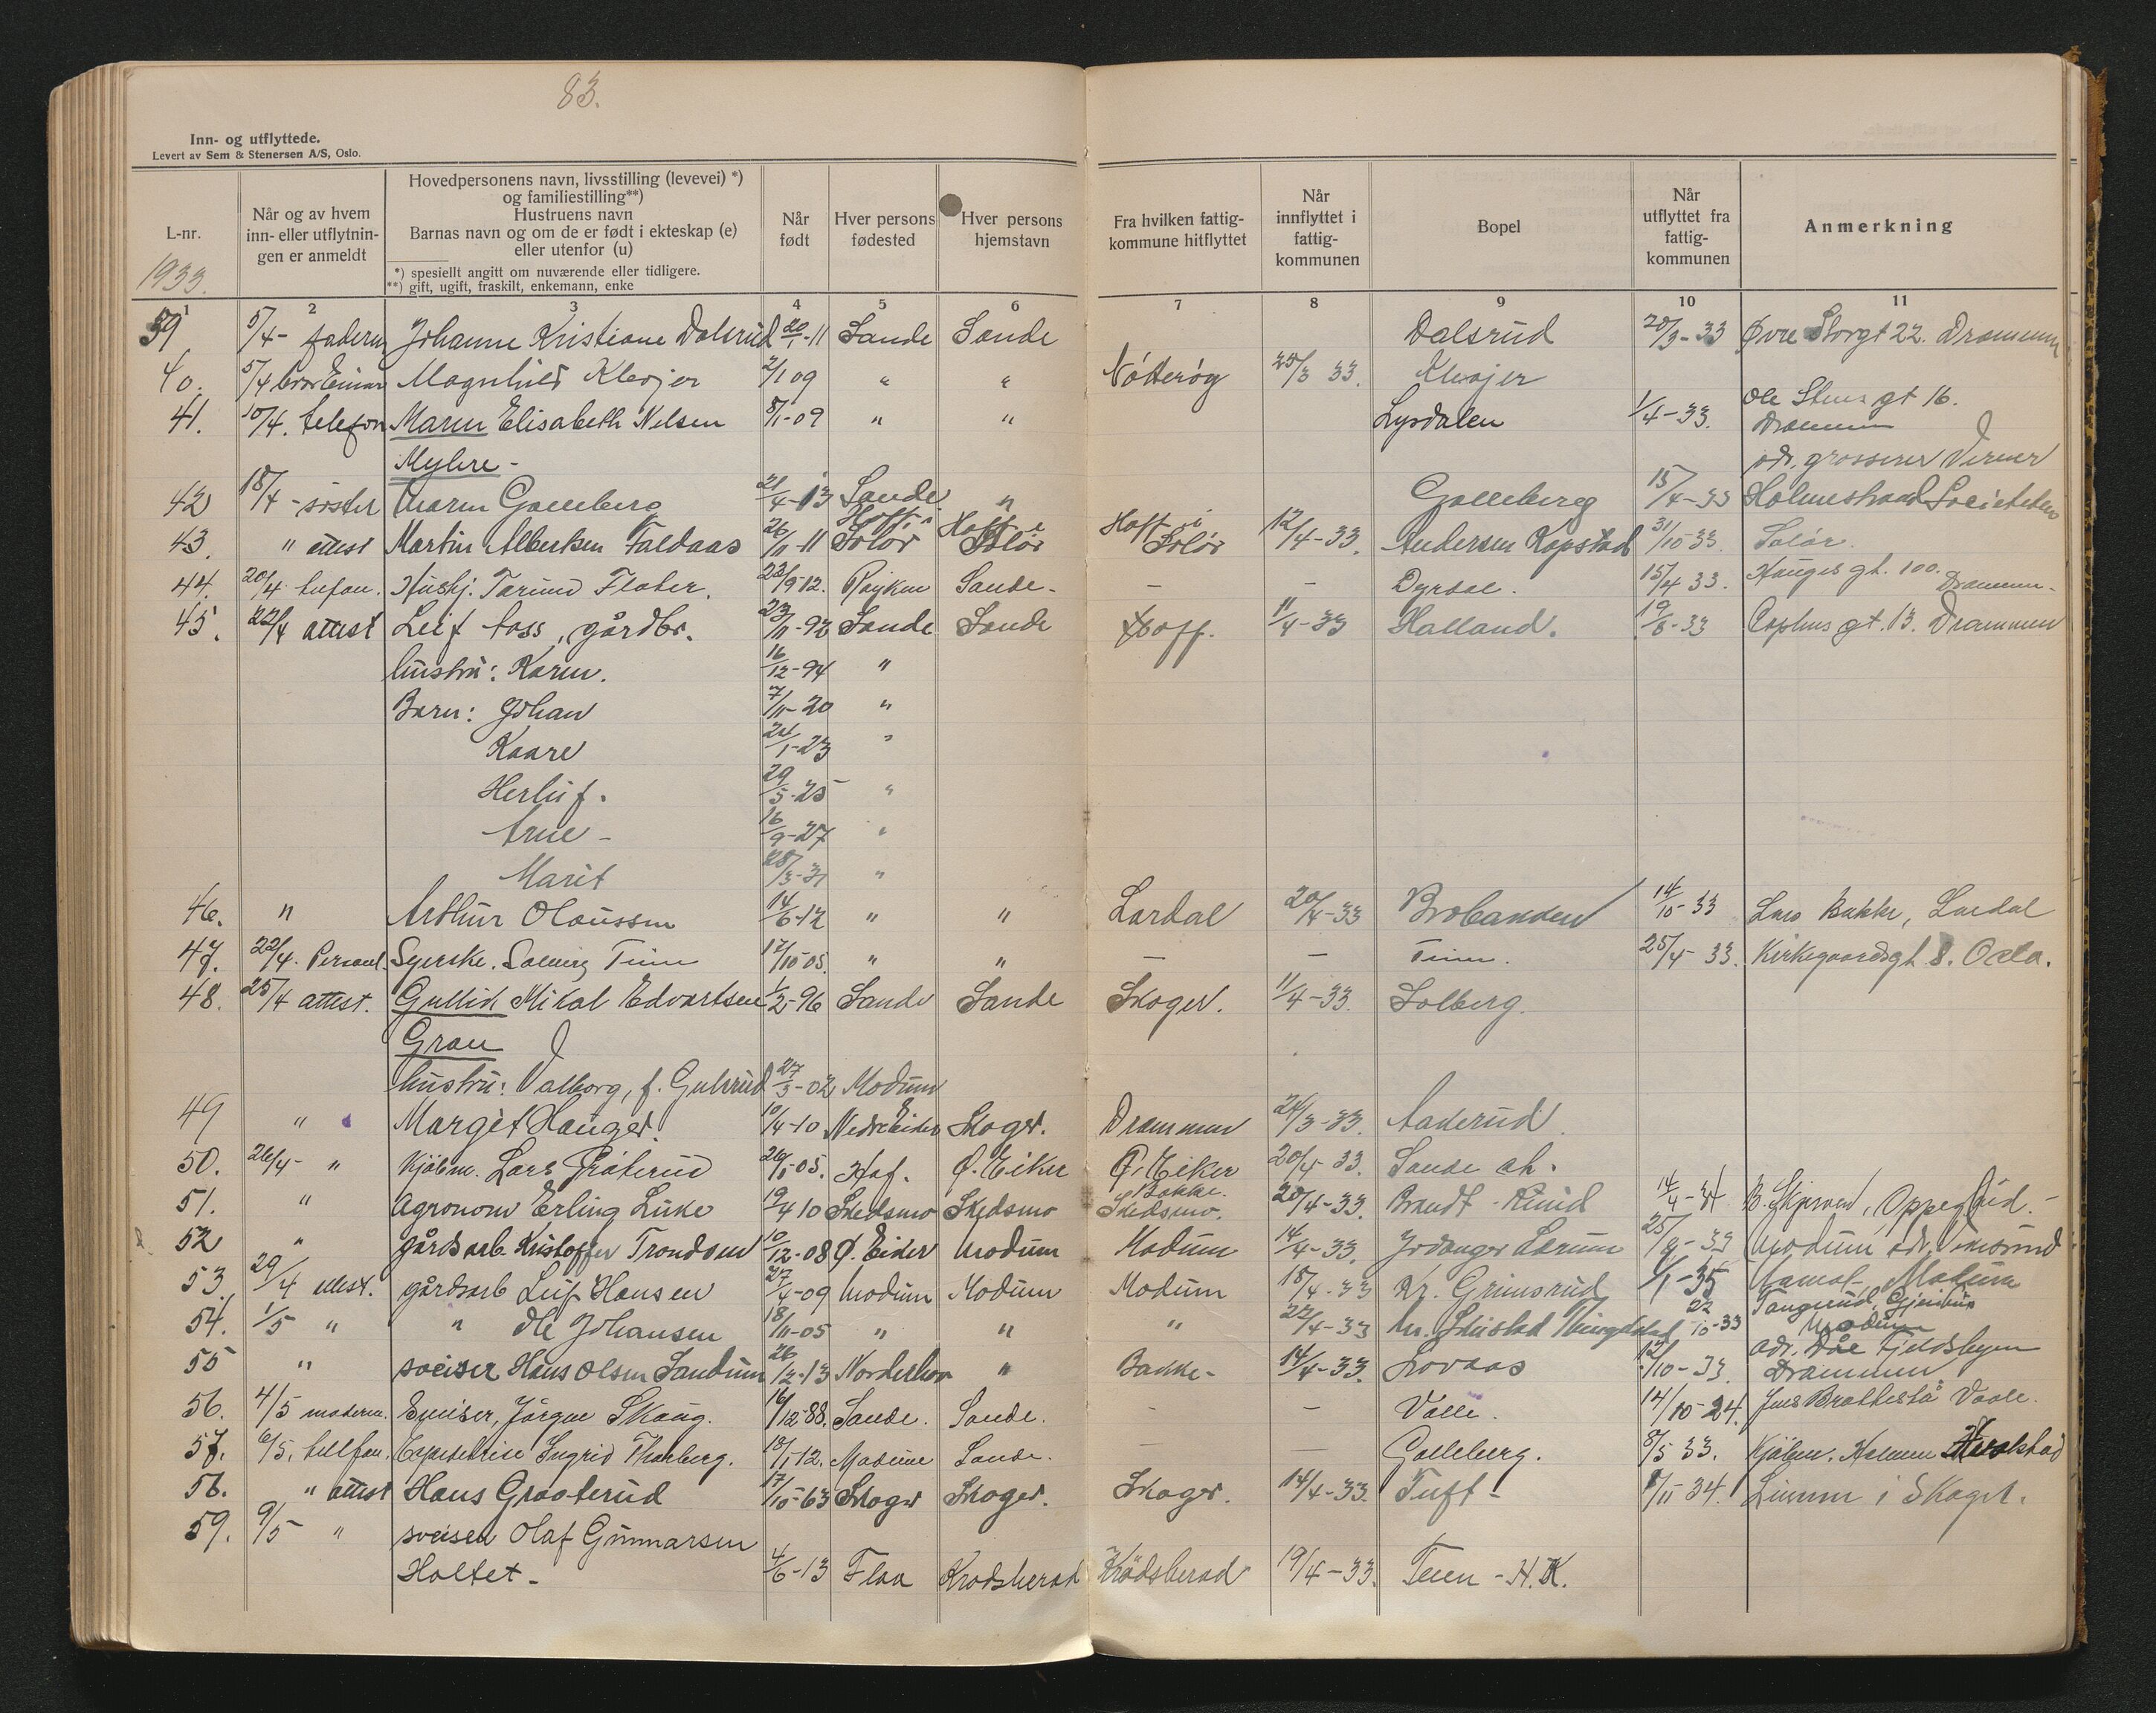 83.
Inn- og utflyttede.
Levert av Sem & Stenersen A/S, Oslo.
L-nr.
1933.
Når og av hvem
inn- eller utflytnin-
gen er anmeldt
Hovedpersonens navn, livsstilling (levevei) *)
og familiestilling**)
Hustruens navn
Barnas navn og om de er født i ekteskap (e)
eller utenfor (u)
*) spesiellt angitt om nuværende eller tidligere.
**) gift, ugift, fraskilt, enkemann, enke
Når
født
Hver persons
fødested
Hver persons
hjemstavn
Fra hvilken fattig-
kommune hitflyttet
Når
innflyttet i
fattig-
kommunen
Bopel
Når
utflyttet fra
fattig-
kommunen
Anmerkning
1 2 3 4 5 6 7 8 9 10 11
39 5/4- faderen Johanne Kristiane Dalsrud 20/1-11 Sande Sande Dalsrud 20/3-33 Øvre Storgt 22. Drammen
40. 5/4 Magnhild Klevjer 2/1 09 " " Nøtterøy 25/3 33. Klevjer
41. 10/4. telefon Maren Elisabeth Nelsen 8/1-09 " " Lysdalen 1/4-33. Ole Stens gt 16.
Drammen
Myhre-
adr. grosserer Verner
42 18/4-søster Maren Galleberg 21/4-13 Sande " Galleberg 15/4-33 Holmestrand Societeten
43. " attest Martin Albertsen Faldaas 26/11-11 Hoff i Solør Hoff i Solør Hoff i Solør 12/4-33. Andersen Kopstad 31/10 33. Solør.
44. 20/4 tlefon. Hushj. Torunn Floter. 23/9 12. Røyken Sande- - - Dyrsoe. 15/4 33. Hauges gt. 100. Drammen-
45. 22/4 attest Leif Aass, gårdbr. 23/11-92 Sande Sande Hoff. 11/4-33 Halland. 19/8-33 gt. 13. Drammen
hustru: Karen. 16/12-94 "
Barn: Johan 7/11-20 "
Kaare 24/1-23 "
Herluf. 29/5-25 "
Arne- 16/9-27 "
Marit 28/3-31 "
46. " Arthur Olaussen 14/6-12 " " Lardal 20/4-33 Brobanden 14/10-33 Lars Bakke, Lardal
47. 22/4. Personl. Syerske. Solveig Tein 17/10-05. " " - - Tein. 25/4-33. Kirkegaardsgt. 8. Oslo.
48. 25/4 attest. Gullik Mikal Edvartsen 1/2-96 Sande Sande Skoger. 11/4-33. Solberg.
Gran
hustru: Valborg, f. Gulsrud 27/3-02 Modum
49 " Margit Hauger. 10/4-10 Nedre Eiker Skoger. Drammen 24/3-33. Aaserud.
50. 26/4- " Kjøbm. Lars Prøterud 26/1-05. Hof. Ø. Eiker Ø. Eiker 20/4-33. Sande ch.
51. " Agronom Erling Linke 19/4 10 Skedsmo Skedsmo Bakke. Skedsmo. 20/4-33. Brandt - Ruud 14/4-34 B. Skjerven, Oppegård.-
52 " gårdsarb. Kristoffer Trondsen 10/12-08 Ø. Eiker Modum Modum 14/4-33. Jordanger Lerum 25/9-33 Modum adr. Vikersund
53. 29/4 attest. gårdsarb Leif Hansen 27/4-09 Modum Modum Modum 18/4-33 Kr. Grimsrud 1/1-35 Aamot- Modum
54. 1/5 " " Ole Johansen 18/11-05 " " " 22/4-33 Skistad 22/10-33 Tangerud, Modum
55 " sveiser Hans Olsen Sandum 26/12-13 Norderhov " Bakke- 14/4-33. Lovaas 12/10-33. adr. Fjeldshejen
Drammen
56. 4/5 moderen. Jørgen Skaug. 16/12-88. Sande. Sande. - - Valle. 14/10-24. Jens Brattestå Vaale.
57. 6/5. tellfon. Expeditrise Ingrid Thorberg. 18/1-12. Modum Sande. - - Galleberg. 8/5 33. Kjøbm. Harkstad
58. " attest Hans Grøaterud 17/10-63 Skoger Skoger. Skoger. 14/4-33. Tuft- 8/11-34. Linnes i Skoger.
59. 9/5 " sveiser Olaf Gunnarsen
Holtet- 4/6-13 Flaa Krødsherad Krødsherad 19/4-33. Teien - H. K.